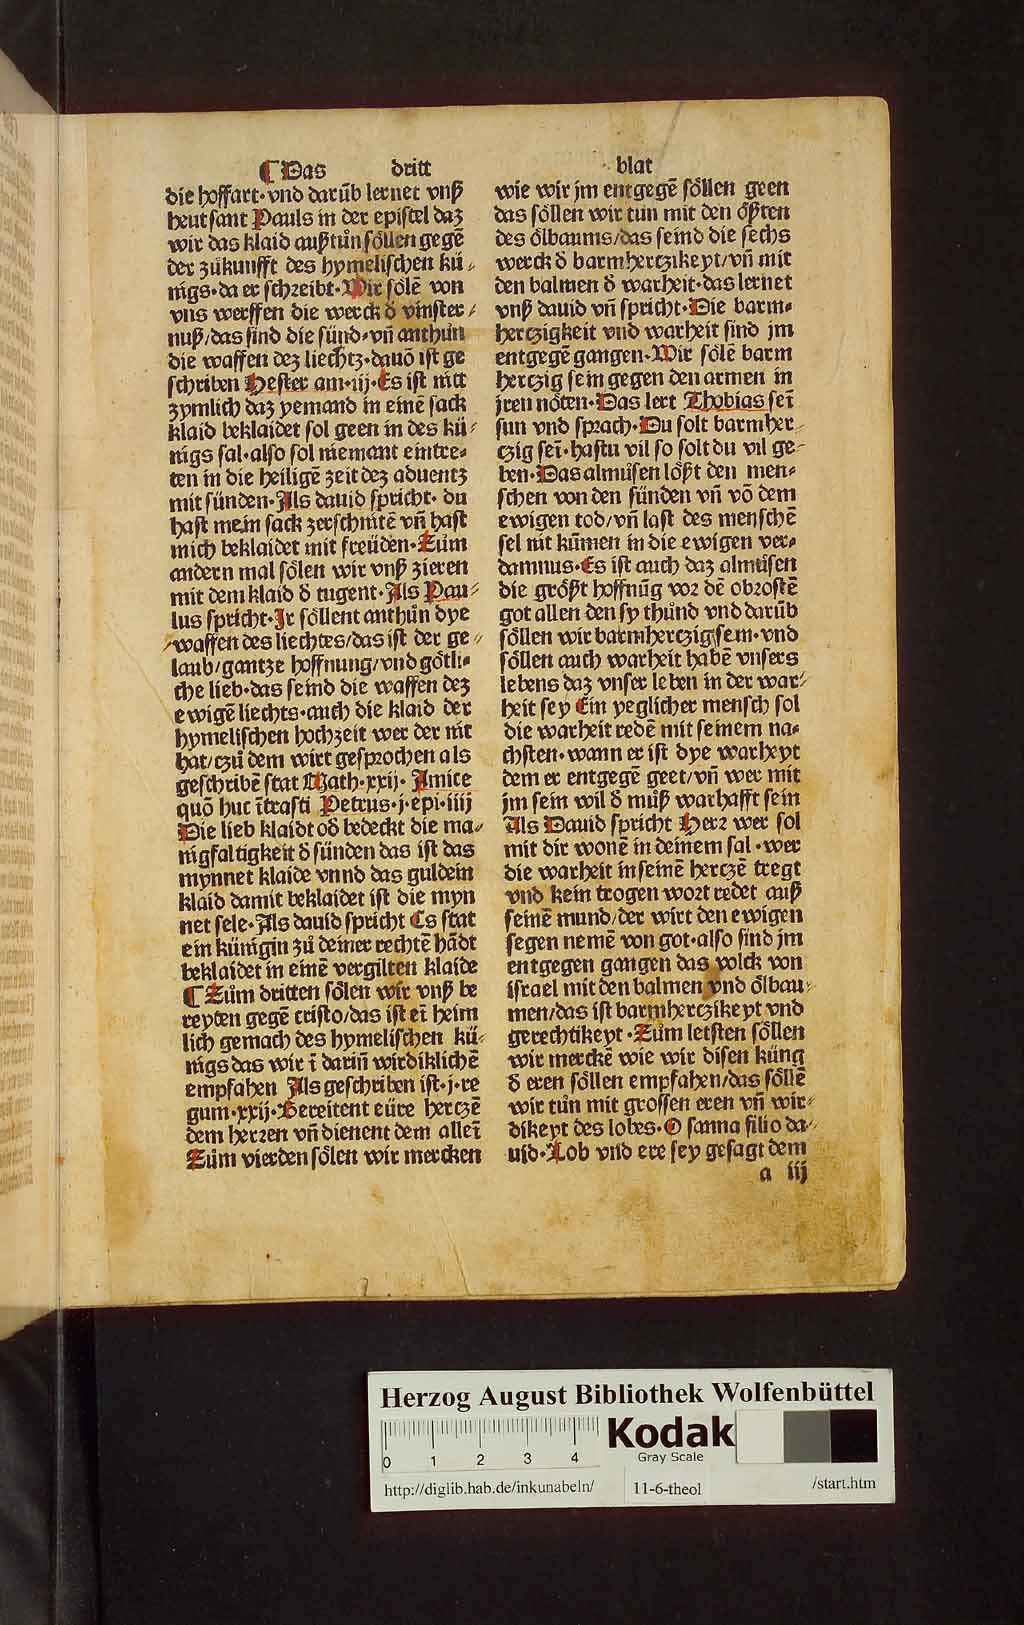 ¶ Das dritt blat
die hoffart·vnd darūb lernet vnß
heut sant Pauls in der epistel daz
wir das klaid außtůn söllen gegē
der zůkunfft des hymelischen kü⸗
nigs·da er schreibt·Wir sölē von
vns werffen die werck ď vinster⸗
nuß/das sind die sünd·vn̄ anthůn
die waffen dez liechtz·dauō ist ge
schriben Hester am·iij·Es ist nitt
zymlich daz yemand in einē sack
klaid beklaidet sol geen in des kü⸗
nigs sal·also sol niemant eintre⸗
ten in die heiligē zeit dez aduentz
mit sünden·Als dauid spricht·du
hast mein sack zerschnitē vn̄ hast
mich beklaidet mit freüden·Zům
andern mal sölen wir vnß zieren
mit dem klaid ď tugent·Als Pau⸗
lus spricht·Ir söllent anthůn dye
waffen des liechtes/das ist der ge⸗
laub/gantze hoffnung/vnd götli⸗
che lieb·das seind die waffen dez
ewigē liechts·auch die klaid der
hymelischen hochzeit wer der nit
hat/czů dem wirt gesprochen als
geschribē stat Math·xxij· Amice
quō huc ītrasti Petrus·j·epi·iiij
Die lieb klaidt oď bedeckt die ma⸗
nigfaltigkeit ď sünden das ist das
mynnet klaide vnnd das guldein
klaid damit beklaidet ist die myn
net sele·Als dauid spricht Es stat
ein künigin zů deiner rechtē hādt
beklaidet in einē vergilten klaide
¶ Zům dritten sölen wir vnß be
reyten gegē cristo/das ist eī heim
lich gemach des hymelischen kü⸗
nigs das wir ī darin̄ wirdiklichē
empfahen Als geschriben ist·j·re
gum·xxij·Bereitent eüre herczē
dem herren vn̄ dienent dem alleī
Zům vierden sölen wir mercken
wie wir jm entgegē söllen geen
das söllen wir tůn mit den ößten
des ölbaums/das seind die sechs
werck ď barmhertzikeyt/vn̄ mit
den balmen ď warheit·das lernet
vnß dauid vn̄ spricht·Die barm⸗
hertzigkeit vnd warheit sind jm
entgegē gangen·Wir sölē barm
hertzig sein gegen den armen in
jren nöten·Das lert Thobias seī
sun vnd sprach·Du solt barmher⸗
czig seī·hastu vil so solt du vil ge⸗
ben·Das almůsen lößt den men⸗
schen von den sünden vn̄ vō dem
ewigen tod/vn̄ last des menschē
sel nit kūmen in die ewigen ver⸗
damnus·Es ist auch daz almůsen
die größt hoffnūg vor dē obrostē
got allen den sy thůnd vnd darūb
söllen wir barmherczig sein·vnd
söllen auch warheit habē vnsers
lebens daz vnser leben in der war⸗
heit sey Ein yeglicher mensch sol
die warheit redē mit seinem na⸗
chsten·wann er ist dye warheyt
dem er entgegē geet/vn̄ wer mit
jm sein wil ď můß warhafft sein
Als Dauid spricht Herr wer sol
mit dir wonē in deinem sal·wer
die warheit in seinē herczē tregt
vnd kein trogen wort redet auß
seinē mund/der wirt den ewigen
segen nemē von got·also sind jm
entgegen gangen das volck von
israel mit den balmen vnd ölbau⸗
men/das ist barmherczikeyt vnd
gerechtikeyt·Zům letsten söllen
wir merckē wie wir disen küng
ď eren söllen empfahen/das söllē
wir tůn mit grossen eren vn̄ wir⸗
dikeyt des lobes·O sanna filio da⸗
uid·Lob vnd ere sey gesagt dem
a iij
Herzog August Bibliothek Wolfenbüttel
0 1 2 3 4
Kodak
Gray Scale
http://diglib.hab.de/inkunabeln/ 11-6-theol /start.htm